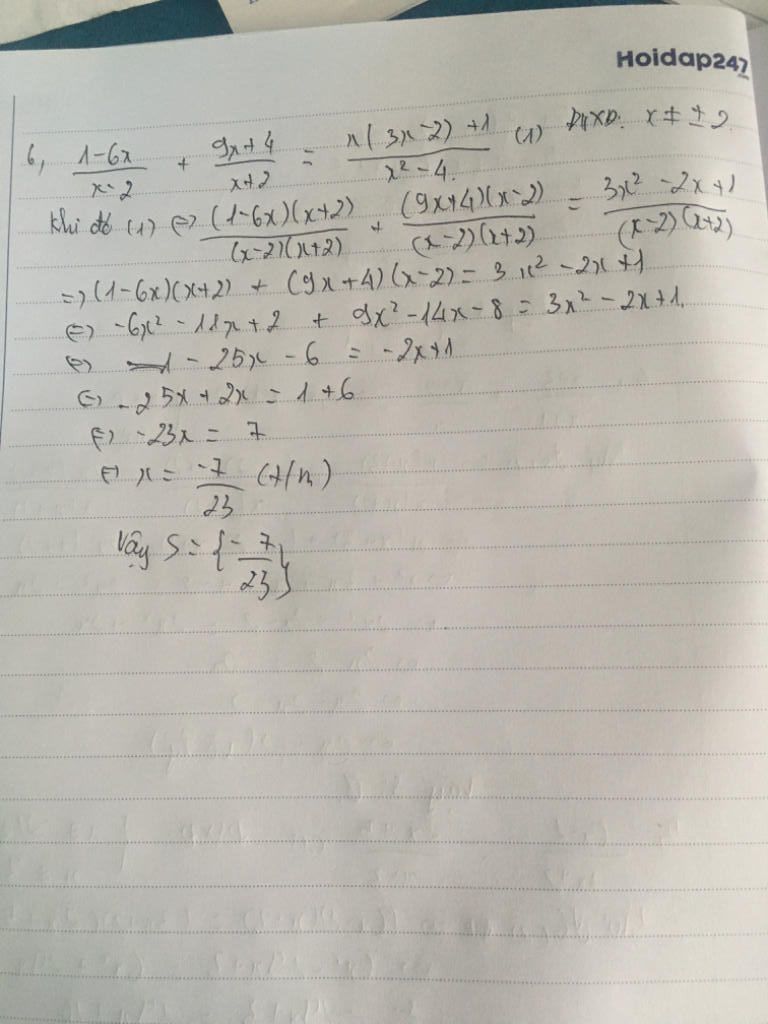 Hoidap247.com
6, \frac{1-6x}{x-2} + \frac{9x+4}{x+2} = \frac{x(3x-2)+1}{x^2-4.} (1) ĐKXĐ: x ≠ ± 2.
Khi đó (1) ⇔ \frac{(1-6x)(x+2)}{(x-2)(x+2)} + \frac{(9x+4)(x-2)}{(x-2)(x+2)} = \frac{3x^2-2x+1}{(x-2)(x+2)}
⇒ (1-6x)(x+2) + (9x+4)(x-2) = 3x² - 2x + 1
⇔ -6x² - 11x + 2 + 9x² - 14x - 8 = 3x² - 2x + 1.
⇔ - 25x - 6 = -2x+1
⇔ -25x + 2x = 1 + 6
⇔ -23x = 7
⇔ x = \frac{-7}{23} (t/m)
Vậy S = {-\frac{7}{23}}